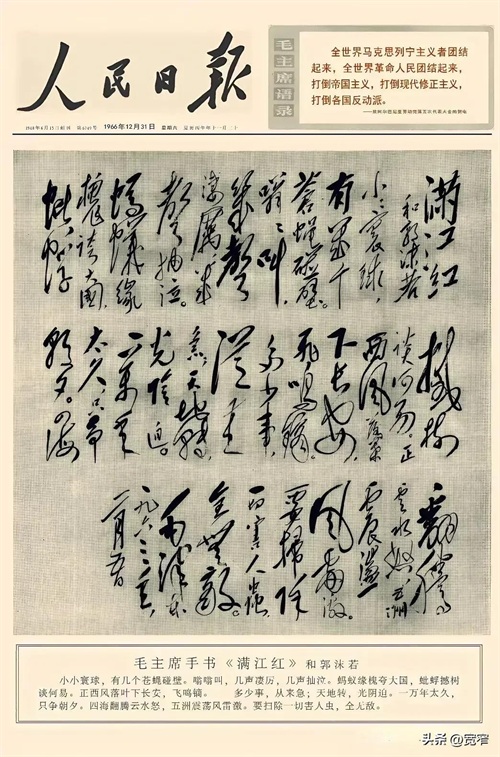 人民日报
毛主席语录
全世界马克思列宁主义者团结
起来,全世界革命人民团结起来,
打倒帝国主义,打倒现代修正主义,
打倒各国反动派。
1948年6月15日创刊 1966年12月31日 星期六 夏历丙午年十一月二十
滿江红
和郭沫若
小小寰球,
有几个
苍蝇碰壁。
嗡嗡叫,
几聲
凄厲,几
聲抽泣。
螞蟻缘
槐誇大國,
蚍蜉
撼樹
谈何易。正
西风落葉
下长安,
飛鳴镝。
多少事,
從来
急;天地轉,
光陰迫。
一萬年
太久,只争
朝夕。四海
翻騰
雲水怒,五洲
震盪
风雷激。
要掃除
一切害人蟲
全無敵。
毛泽东
一九六三年
二月五日
毛主席手书《满江红》和郭沫若
小小寰球,有几个苍蝇碰壁。嗡嗡叫,几声凄厉,几声抽泣。蚂蚁缘槐夸大国,蚍蜉撼树
谈何易。正西风落叶下长安,飞鸣镝。 多少事,从来急;天地转,光阴迫。一万年太久,
只争朝夕。四海翻腾云水怒,五洲震荡风雷激。要扫除一切害人虫,全无敌。
头条 @宽窄